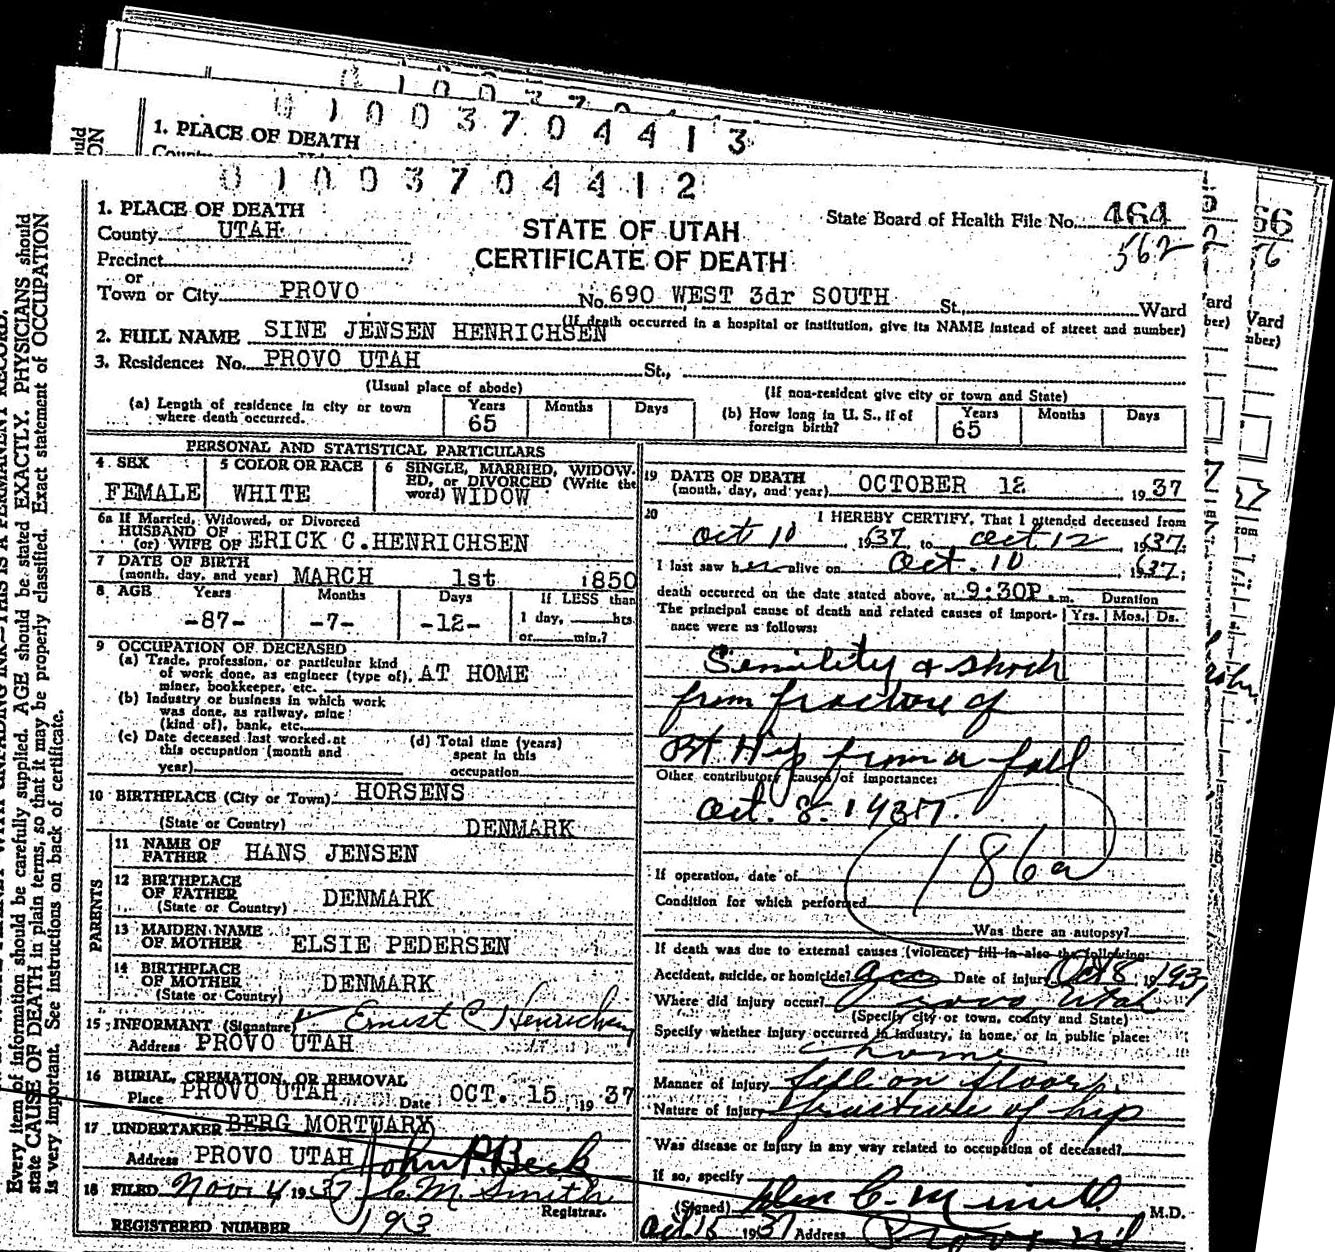 0 1 0 0 3 7 0 4 4 1 3
1. PLACE OF DEATH
0 1 0 0 3 7 0 4 4 1 2
1. PLACE OF DEATH
County UTAH
STATE OF UTAH
State Board of Health File No. 464
562
Precinct
CERTIFICATE OF DEATH
or
Town or City PROVO No. 690 WEST 3dr SOUTH St., Ward
(If death occurred in a hospital or institution, give its NAME instead of street and number)
2. FULL NAME SINE JENSEN HENRICHSEN
3. Residence: No. PROVO UTAH St.,
(Usual place of abode) (If non-resident give city or town and State)
(a) Length of residence in city or town where death occurred. Years 65 Months Days
(b) How long in U. S., if of foreign birth? Years 65 Months Days
PERSONAL AND STATISTICAL PARTICULARS
4 SEX FEMALE
5 COLOR OR RACE WHITE
6 SINGLE, MARRIED, WIDOWED, or DIVORCED (Write the word) WIDOW
6a If Married, Widowed, or Divorced
HUSBAND OF
(or) WIFE OF ERICK C.HENRICHSEN
7 DATE OF BIRTH
(month, day, and year) MARCH 1st 1850
8 AGE Years Months Days If LESS than
-87- -7- -12- 1 day, hrs.
or min.?
9 OCCUPATION OF DECEASED
(a) Trade, profession, or particular kind
of work done, as engineer (type of), AT HOME
miner, bookkeeper, etc.
(b) Industry or business in which work
was done, as railway, mine
(kind of), bank, etc.
(c) Date deceased last worked at
this occupation (month and
year)
(d) Total time (years)
spent in this
occupation
10 BIRTHPLACE (City or Town) HORSENS
(State or Country) DENMARK
PARENTS
11 NAME OF
FATHER HANS JENSEN
12 BIRTHPLACE
OF FATHER DENMARK
(State or Country)
13 MAIDEN NAME
OF MOTHER ELSIE PEDERSEN
14 BIRTHPLACE
OF MOTHER DENMARK
(State or Country)
15 INFORMANT (Signature) Ernest C Henrichsen
Address PROVO UTAH
16 BURIAL, CREMATION, OR REMOVAL
Place PROVO UTAH Date OCT. 15, 19 37
17 UNDERTAKER BERG MORTUARY
Address PROVO UTAH John P. Beck
18 FILED Nov. 4 1937 C M Smith
Registrar.
REGISTERED NUMBER 193
19 DATE OF DEATH
(month, day, and year) OCTOBER 12 19 37
20 I HEREBY CERTIFY, That I attended deceased from
Oct 10 1937 to Oct 12 1937.
I last saw her alive on Oct. 10 1937;
death occurred on the date stated above, at 9:30P .m. Duration
The principal cause of death and related causes of importance were as follows: Yrs. Mos. Ds.
Senility & shock
from fracture of
Rt Hip from a fall
Other contributory causes of importance:
Oct. 8. 1937.
186a
If operation, date of
Condition for which performed
Was there an autopsy?
If death was due to external causes (violence) fill in also the following:
Accident, suicide, or homicide? Acc Date of injury Oct 8 1937
Where did injury occur? Provo Utah
(Specify city or town, county and State)
Specify whether injury occurred in industry, in home, or in public place:
home
Manner of injury fell on floor
Nature of injury fracture of hip
Was disease or injury in any way related to occupation of deceased?
If so, specify
(Signed) M.D.
Oct 15 1937 Address Provo
Every item of information should be carefully supplied. AGE should be stated EXACTLY. PHYSICIANS should
state CAUSE OF DEATH in plain terms, so that it may be properly classified. Exact statement of OCCUPATION
is very important. See instructions on back of certificate.